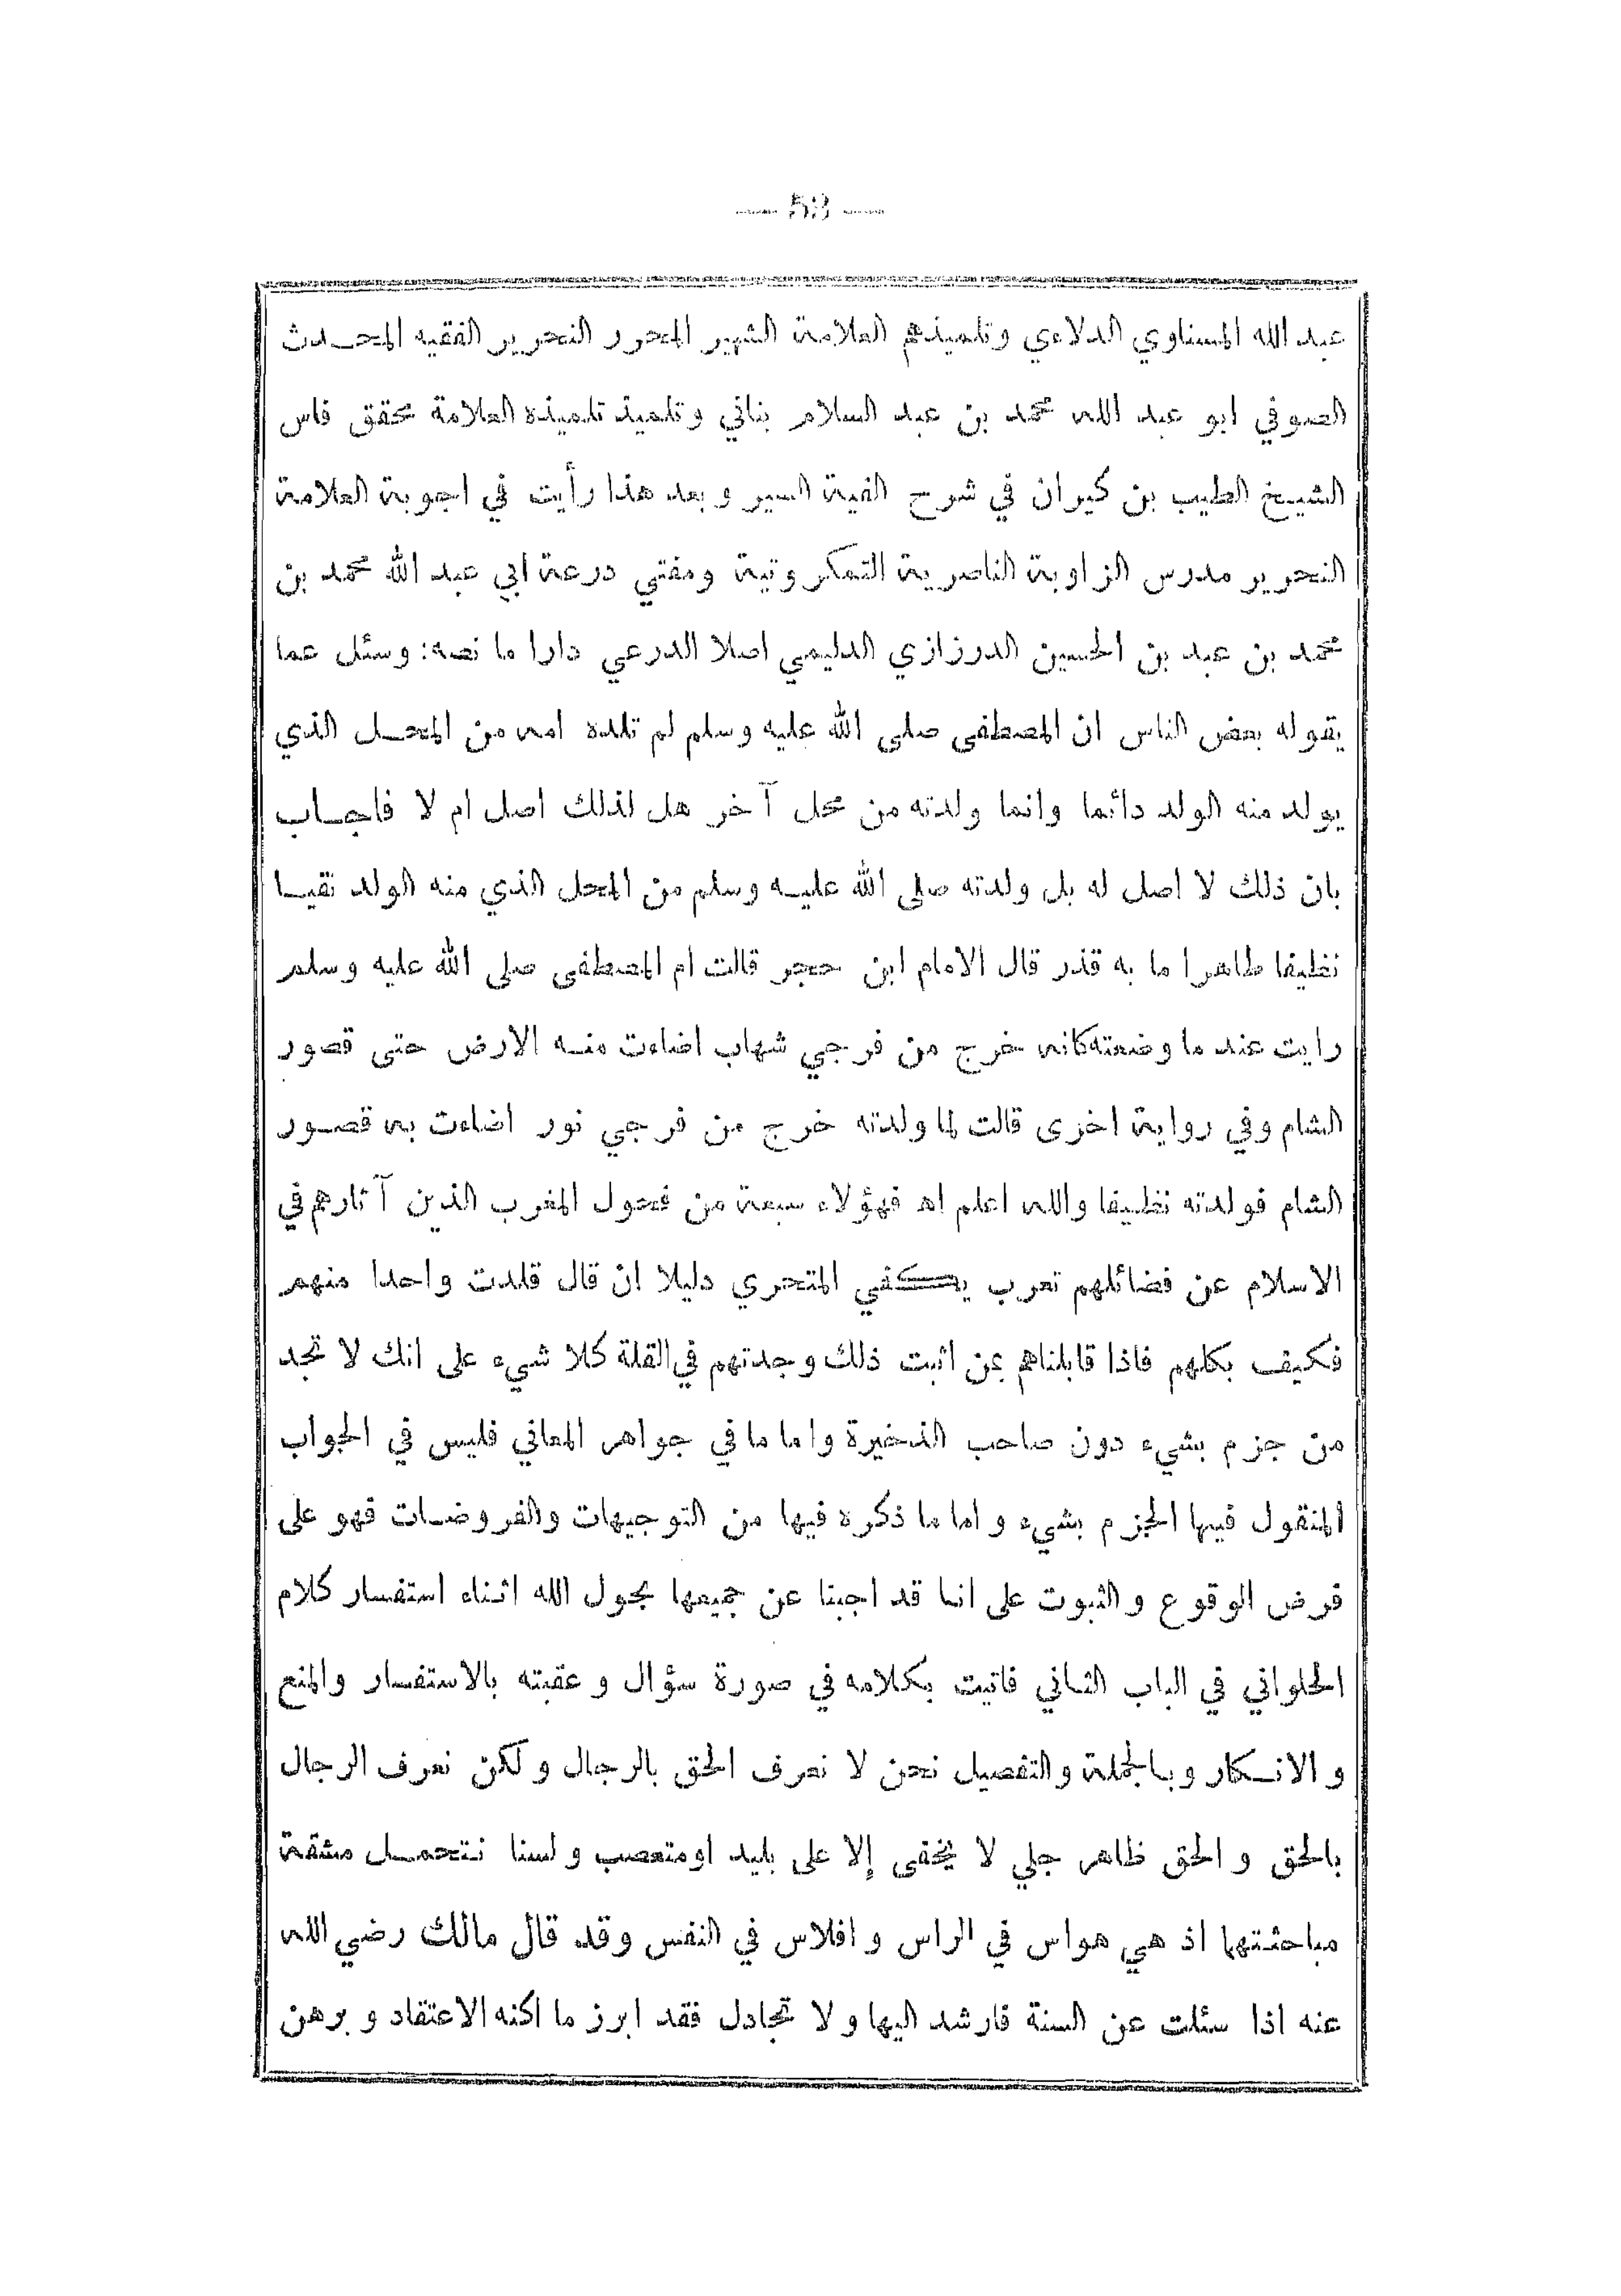 — 53 —
عبد الله المسناوي الدلاءي وتلميذهم العلامة الشهير المحرر النحرير الفقيه المحـدث
الصوفي ابو عبد الله محمد بن عبد السلام بناني وتلميذ تلميذه العلامة محقق فاس
الشيـخ الطيب بن كيران في شرح الفية السير وبعد هذا رأيت في اجوبة العلامة
النحرير مدرس الزاوية الناصرية التمكروتية ومفتي درعة ابي عبد الله محمد بن
محمد بن عبد بن الحسين الدرزازي الدليمي اصلا الدرعي دارا ما نصه: وسئل عما
يقوله بعض الناس ان المصطفى صلى الله عليه وسلم لم تلده امه من المحـل الذي
يولد منه الولد دائما وانما ولدته من محل آخر هل لذلك اصل ام لا فاجـاب
بان ذلك لا اصل له بل ولدته صلى الله عليـه وسلم من المحل الذي منه الولد نقيـا
نظيفا طاهرا ما به قذر قال الامام ابن حجر قالت ام المصطفى صلى الله عليه وسلم
رايت عند ما وضعته كانه خرج من فرجي شهاب اضاءت منـه الارض حتى قصور
الشام وفي رواية اخرى قالت لما ولدته خرج من فرجي نور اضاءت به قصـور
الشام فولدته نظيفا والله اعلم اه فهؤلاء سبعة من فحول المغرب الذين آثارهم في
الاسلام عن فضائلهم تعرب يـكفي المتحري دليلا ان قال قلدت واحدا منهم
فكيف بكلهم فاذا قابلناهم بمن اثبت ذلك وجدتهم في القلة كلا شيء على انك لا تجد
من جزم بشيء دون صاحب الذخيرة واما ما في جواهر المعاني فليس في الجواب
المنقول فيها الجزم بشيء واما ما ذكره فيها من التوجيهات والفروضـات فهو على
فرض الوقوع والثبوت على انـا قد اجبنا عن جميعها بحول الله اثناء استفسار كلام
الحلواني في الباب الثـاني فاتيت بكلامه في صورة سؤال وعقبته بالاستفسار والمنع
والانـكار وبـالجملة والتفصيل نحن لا نعرف الحق بالرجال ولكن نعرف الرجال
بالحق والحق ظاهر جلي لا يخفى إلا على بليد او متعصب ولسنا نـتحمـل مشقة
مباحثتهما اذ هي هواس في الراس وافلاس في النفس وقد قال مالك رضي الله
عنه اذا سئلت عن السنة فارشد اليها ولا تجادل فقد ابرز ما اكنه الاعتقاد وبرهن